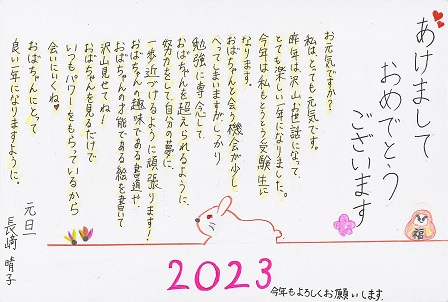 あけまして
おめでとう
ございます
お元気ですか?
私は、とても元気です。
昨年は沢山お世話になって、
とても楽しい一年になりました。
今年は私もとうとう受験生に
なります!
おばちゃんと会う機会が少し
へってしまいますがしっかり
勉強に専念して
おばちゃんを超えられるように、
努力をして自分の夢に、
一歩近づけるように頑張ります!
おばちゃんの趣味である書道や、
おばちゃんの才能である絵を書いて
沢山見せてね!
おばちゃんを見るだけで
いつもパワーをもらっているから
会いにいくね
おばちゃんにとって
良い一年になりますように。
元旦
長崎 晴子
福
2023
今年もよろしくお願いします